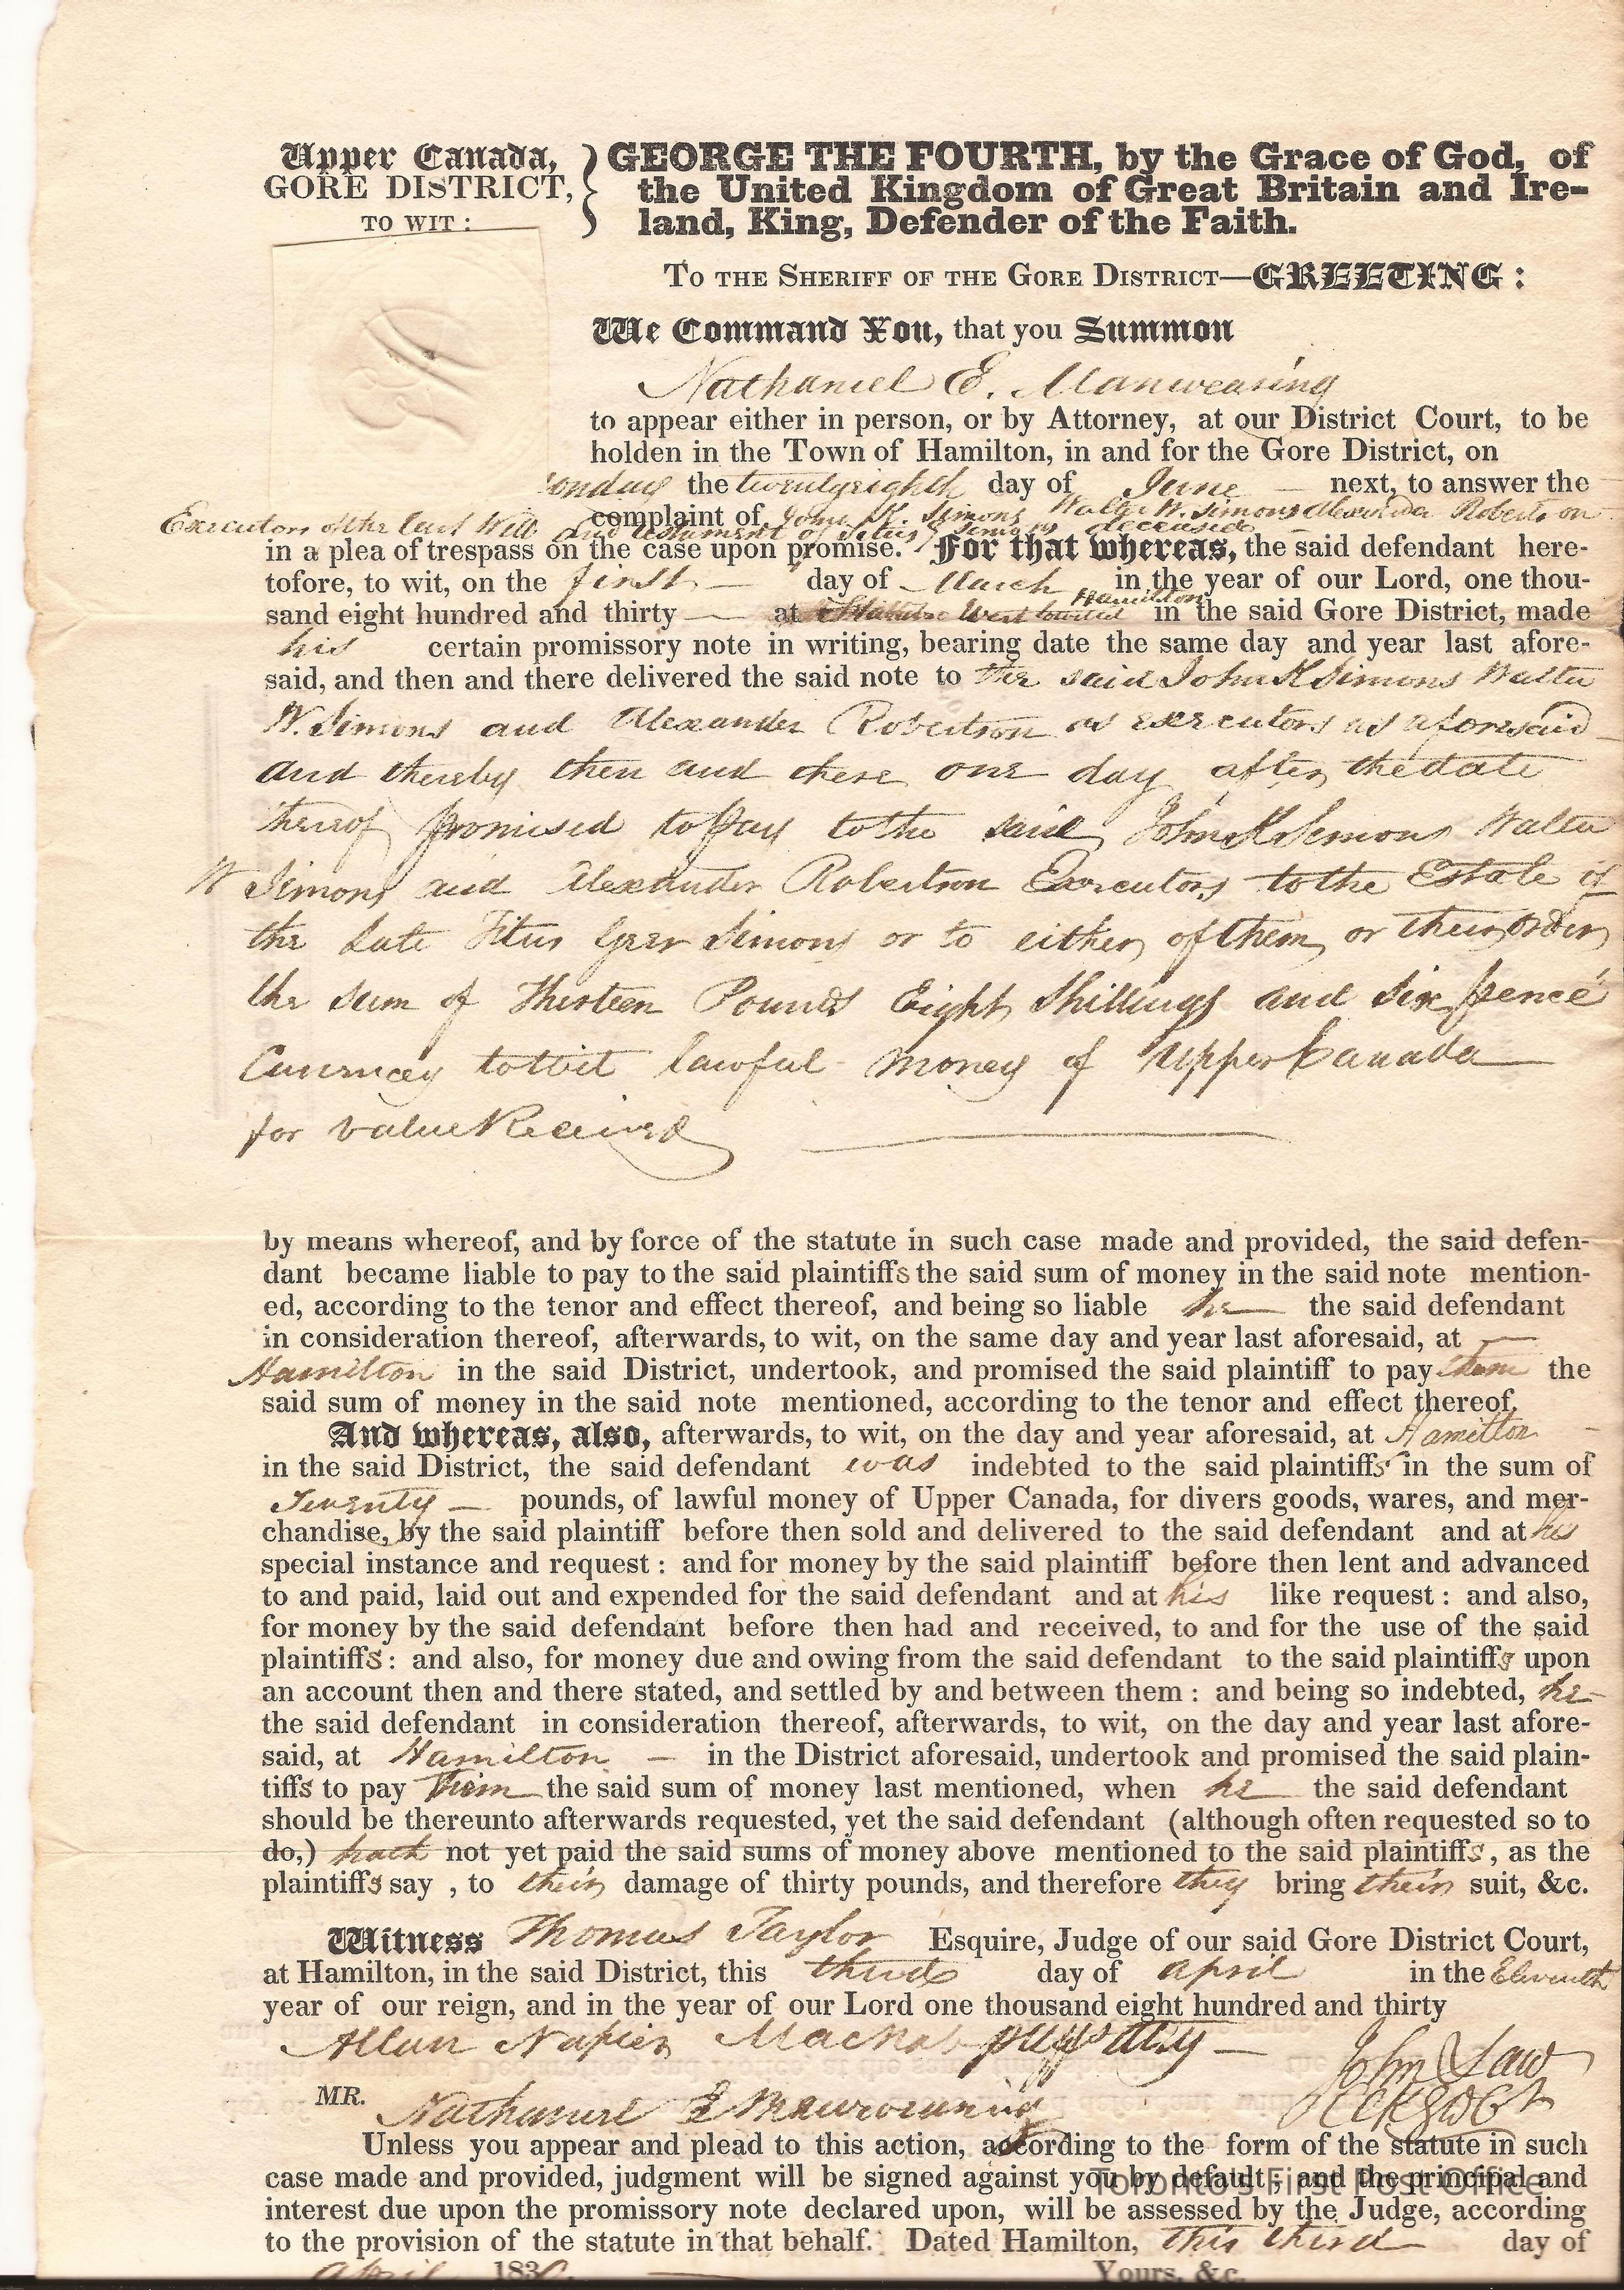 Upper Canada,
GORE DISTRICT,
TO WIT :
GEORGE THE FOURTH, by the Grace of God, of
the United Kingdom of Great Britain and Ire-
land, King, Defender of the Faith.
TO THE SHERIFF OF THE GORE DISTRICT—GREETING :
We Command You, that you Summon
Nathaniel E. Manwearing
to appear either in person, or by Attorney, at our District Court, to be
holden in the Town of Hamilton, in and for the Gore District, on
onday the twentyeighth day of June next, to answer the
complaint of John K. Simons Walter W. Simons Alexander Robertson
Executors of the last Will and testament of Titus G Simons deceased
in a plea of trespass on the case upon promise. For that whereas, the said defendant here-
tofore, to wit, on the first day of March in the year of our Lord, one thou-
sand eight hundred and thirty — at Hamilton in the said Gore District, made
his certain promissory note in writing, bearing date the same day and year last afore-
said, and then and there delivered the said note to the said John K Simons Walter
W. Simons and Alexander Robertson as executors as aforesaid
and thereby then and there one day after the date
thereof promised to pay to the said John K Simons Walter
W Simons and Alexander Robertson Executors to the Estate of
the late Titus Geer Simons or to either of them or their order
the sum of Thirteen Pounds Eight Shillings and six pence
Currency towit lawful money of Upper Canada
for value Received
by means whereof, and by force of the statute in such case made and provided, the said defen-
dant became liable to pay to the said plaintiffs the said sum of money in the said note mention-
ed, according to the tenor and effect thereof, and being so liable he the said defendant
in consideration thereof, afterwards, to wit, on the same day and year last aforesaid, at
Hamilton in the said District, undertook, and promised the said plaintiff to pay them the
said sum of money in the said note mentioned, according to the tenor and effect thereof.
And whereas, also, afterwards, to wit, on the day and year aforesaid, at Hamilton
in the said District, the said defendant was indebted to the said plaintiffs in the sum of
Twenty — pounds, of lawful money of Upper Canada, for divers goods, wares, and mer-
chandise, by the said plaintiff before then sold and delivered to the said defendant and at his
special instance and request : and for money by the said plaintiff before then lent and advanced
to and paid, laid out and expended for the said defendant and at his like request : and also,
for money by the said defendant before then had and received, to and for the use of the said
plaintiffs : and also, for money due and owing from the said defendant to the said plaintiffs upon
an account then and there stated, and settled by and between them : and being so indebted, he
the said defendant in consideration thereof, afterwards, to wit, on the day and year last afore-
said, at Hamilton — in the District aforesaid, undertook and promised the said plain-
tiffs to pay them the said sum of money last mentioned, when he the said defendant
should be thereunto afterwards requested, yet the said defendant (although often requested so to
do,) hath not yet paid the said sums of money above mentioned to the said plaintiffs, as the
plaintiffs say , to their damage of thirty pounds, and therefore they bring their suit, &c.
Witness Thomas Taylor Esquire, Judge of our said Gore District Court,
at Hamilton, in the said District, this third day of april in the Eleventh
year of our reign, and in the year of our Lord one thousand eight hundred and thirty
Allan Napier MacNab
John Law
MR. Nathaniel E Manwearing
Unless you appear and plead to this action, according to the form of the statute in such
case made and provided, judgment will be signed against you by default ; and the principal and
interest due upon the promissory note declared upon, will be assessed by the Judge, according
to the provision of the statute in that behalf. Dated Hamilton, this third day of
april 1830. Yours, &c.
Toronto's First Post Office